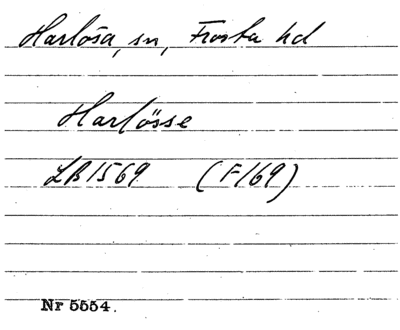 Harlösa, sn, Frosta hd
Harlösse
LB 1569 (F169)
Nr 5554.